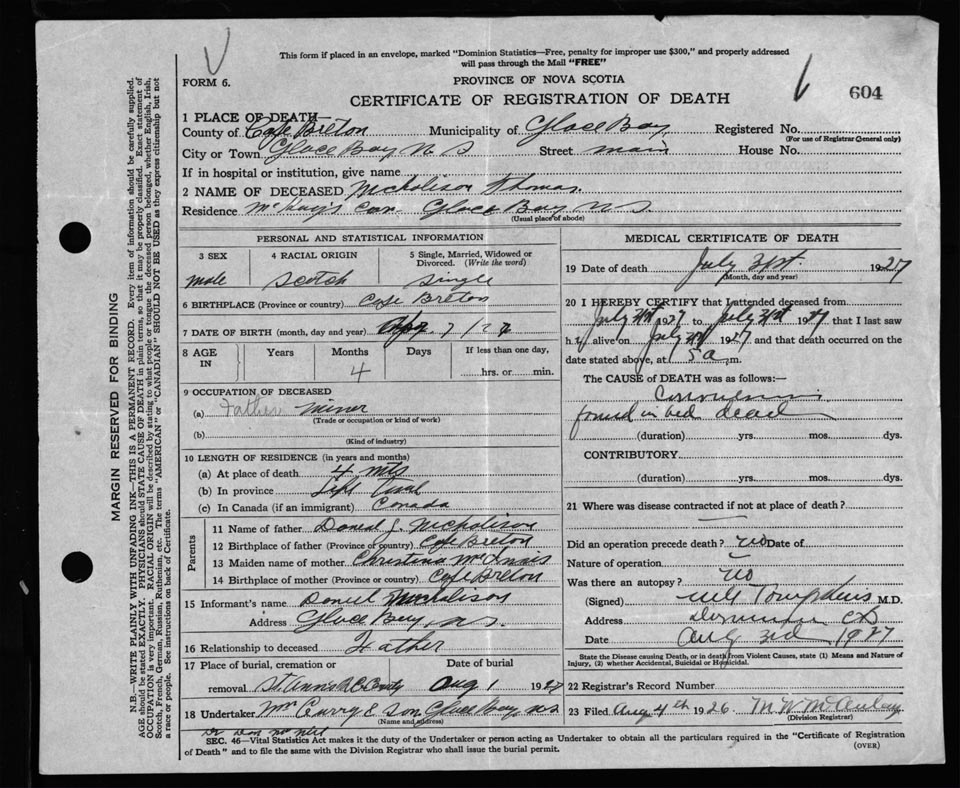 This form if placed in an envelope, marked "Dominion Statistics—Free, penalty for improper use $300," and properly addressed
will pass through the Mail "FREE"
FORM 6.
PROVINCE OF NOVA SCOTIA
604
CERTIFICATE OF REGISTRATION OF DEATH
1 PLACE OF DEATH—
County of Cape Breton Municipality of Glace Bay Registered No.
(For use of Registrar General only)
City or Town Glace Bay N S Street main House No.
If in hospital or institution, give name
2 NAME OF DECEASED Nicholison Thomas.
Residence McKay's Cor. Glace Bay NS.
(Usual place of abode)
PERSONAL AND STATISTICAL INFORMATION
3 SEX 4 RACIAL ORIGIN 5 Single, Married, Widowed or Divorced. (Write the word)
male Scotch Single
6 BIRTHPLACE (Province or country) Cape Breton
7 DATE OF BIRTH (month, day and year) 7/27
8 AGE IN Years Months Days If less than one day,
4 hrs. or min.
9 OCCUPATION OF DECEASED
(a) Father miner
(Trade or occupation or kind of work)
(b)
(Kind of industry)
10 LENGTH OF RESIDENCE (in years and months)
(a) At place of death 4 mts
(b) In province Life Time
(c) In Canada (if an immigrant) Canada
Parents
11 Name of father Daniel J. Nicholison
12 Birthplace of father (Province or country) Cape Breton
13 Maiden name of mother Christina McInnis
14 Birthplace of mother (Province or country) Cape Breton
15 Informant's name Daniel Nicholison
Address Glace Bay, N.S.
16 Relationship to deceased Father
17 Place of burial, cremation or Date of burial
removal St. Ann's R.C. Aug 1 1927
18 Undertaker Wm Curry & Son Glace Bay, NS
(Name and address)
MEDICAL CERTIFICATE OF DEATH
19 Date of death July 31st. 1927
(Month, day and year)
20 I HEREBY CERTIFY that I attended deceased from
July 31st 1927 to July 31st 1927 that I last saw
h alive on July 31st 1927 and that death occurred on the
date stated above, at 5 a m.
The CAUSE of DEATH was as follows:—
found in bed dead
(duration) yrs. mos. dys.
CONTRIBUTORY
(duration) yrs. mos. dys.
21 Where was disease contracted if not at place of death?
Did an operation precede death? no Date of
Nature of operation
Was there an autopsy? no
(Signed) Tompkins M.D.
Address Dominion CB
Date Aug 3rd 1927
State the Disease causing Death, or in death from Violent Causes, state (1) Means and Nature of
Injury, (2) whether Accidental, Suicidal or Homicidal.
22 Registrar's Record Number
23 Filed Aug 4th 1926 M W McAulay
(Division Registrar)
SEC. 46—Vital Statistics Act makes it the duty of the Undertaker or person acting as Undertaker to obtain all the particulars required in the "Certificate of Registration
of Death" and to file the same with the Division Registrar who shall issue the burial permit.
(OVER)
MARGIN RESERVED FOR BINDING
N.B.—WRITE PLAINLY WITH UNFADING INK—THIS IS A PERMANENT RECORD. Every item of information should be carefully supplied.
AGE should be stated EXACTLY. PHYSICIANS should STATE CAUSE OF DEATH in plain terms, so that it may be properly classified. Exact statement of
OCCUPATION is very important. RACIAL ORIGIN will be described by stating to what people or tongue the deceased person belonged, whether English, Irish,
Scotch, French, German, Russian, Ruthenian, etc. The terms "AMERICAN" or "CANADIAN" SHOULD NOT BE USED as they express citizenship but not
a race or people. See instructions on back of Certificate.